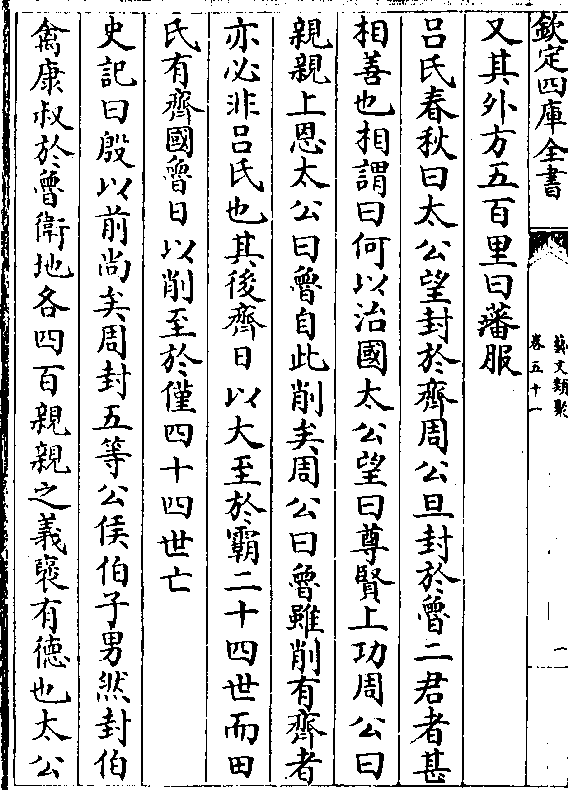 欽定四庫全書
藝文類聚
卷五十一
一
又其外方五百里曰藩服
呂氏春秋曰太公望封於齊周公旦封於魯二君者甚
相善也相謂曰何以治國太公望曰尊賢上功周公曰
親親上恩太公曰魯自此削矣周公曰魯雖削有齊者
亦必非呂氏也其後齊日以大至於霸二十四世而田
氏有齊國魯日以削至於僅四十四世亡
史記曰殷以前尚矣周封五等公侯伯子男然封伯
禽康叔於魯衛地各四百親親之義褒有德也太公